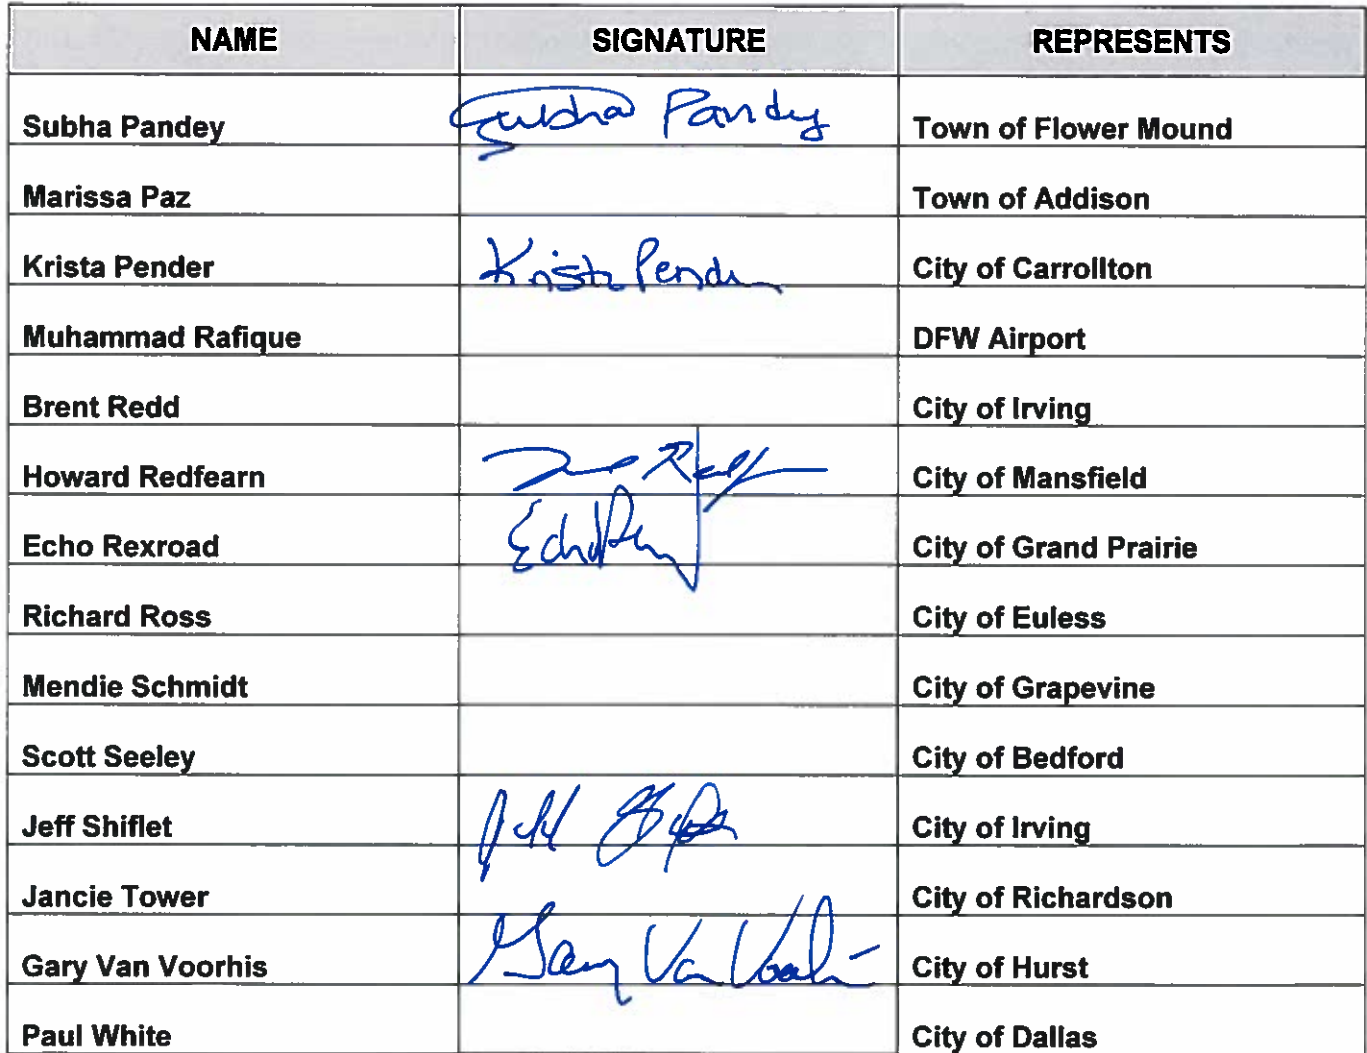 NAME SIGNATURE REPRESENTS
Subha Pandey Subha Pandey Town of Flower Mound
Marissa Paz Town of Addison
Krista Pender Krista Pender City of Carrollton
Muhammad Rafique DFW Airport
Brent Redd City of Irving
Howard Redfearn City of Mansfield
Echo Rexroad Echo City of Grand Prairie
Richard Ross City of Euless
Mendie Schmidt City of Grapevine
Scott Seeley City of Bedford
Jeff Shiflet Jeff City of Irving
Jancie Tower City of Richardson
Gary Van Voorhis Gary Van Voorhis City of Hurst
Paul White City of Dallas